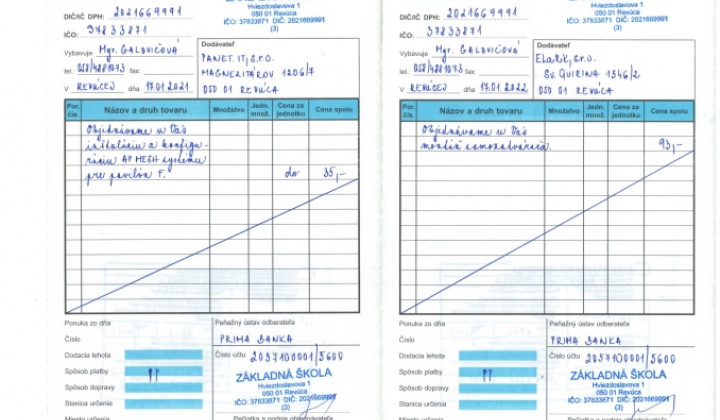 DIČ/IČ DPH: 2021669991
IČO: 37833871
Hviezdoslavova 1
050 01 Revúca
IČO: 37833871 DIČ: 2021669991
(3)
Vybavuje Mgr. GALOVIČOVÁ
tel.: 058/4881073 fax:
V REVÚCEJ dňa 17.01.2021
Dodávateľ
PANET.IT, S.R.O.
MAGNEZITÁROV 1206/7
050 01 REVÚCA
Por. čís. Názov a druh tovaru Množstvo Jedn. množ. Cena za jednotku Cena spolu
Objednávame u Vás
inštaláciu a konfigu-
ráciu AP MESH systému
pre pavilón F. do 35,-
Ponuka zo dňa
Číslo
Dodacia lehota
Spôsob platby
Spôsob dopravy
Stanica určenia
Miesto určenia
Peňažný ústav odberateľa
PRIMA BANKA
Číslo účtu 2057100001/5600
ZÁKLADNÁ ŠKOLA
Hviezdoslavova 1
050 01 Revúca
IČO: 37833871 DIČ: 2021669991
(3)
DIČ/IČ DPH: 2021669991
IČO: 37833871
Hviezdoslavova 1
050 01 Revúca
IČO: 37833871 DIČ: 2021669991
(3)
Vybavuje Mgr. GALOVIČOVÁ
tel.: 058/4881073 fax:
V REVÚCEJ dňa 17.01.2022
Dodávateľ
ELaRK, s.r.o.
Sv. QUIRINA 1346/2
050 01 REVÚCA
Por. čís. Názov a druh tovaru Množstvo Jedn. množ. Cena za jednotku Cena spolu
Objednávame u Vás
montáž samozatvárača. 93,-
Ponuka zo dňa
Číslo
Dodacia lehota
Spôsob platby
Spôsob dopravy
Stanica určenia
Peňažný ústav odberateľa
PRIMA BANKA
Číslo účtu 2057100001/5600
ZÁKLADNÁ ŠKOLA
Hviezdoslavova 1
050 01 Revúca
IČO: 37833871 DIČ: 2021669991
(3)